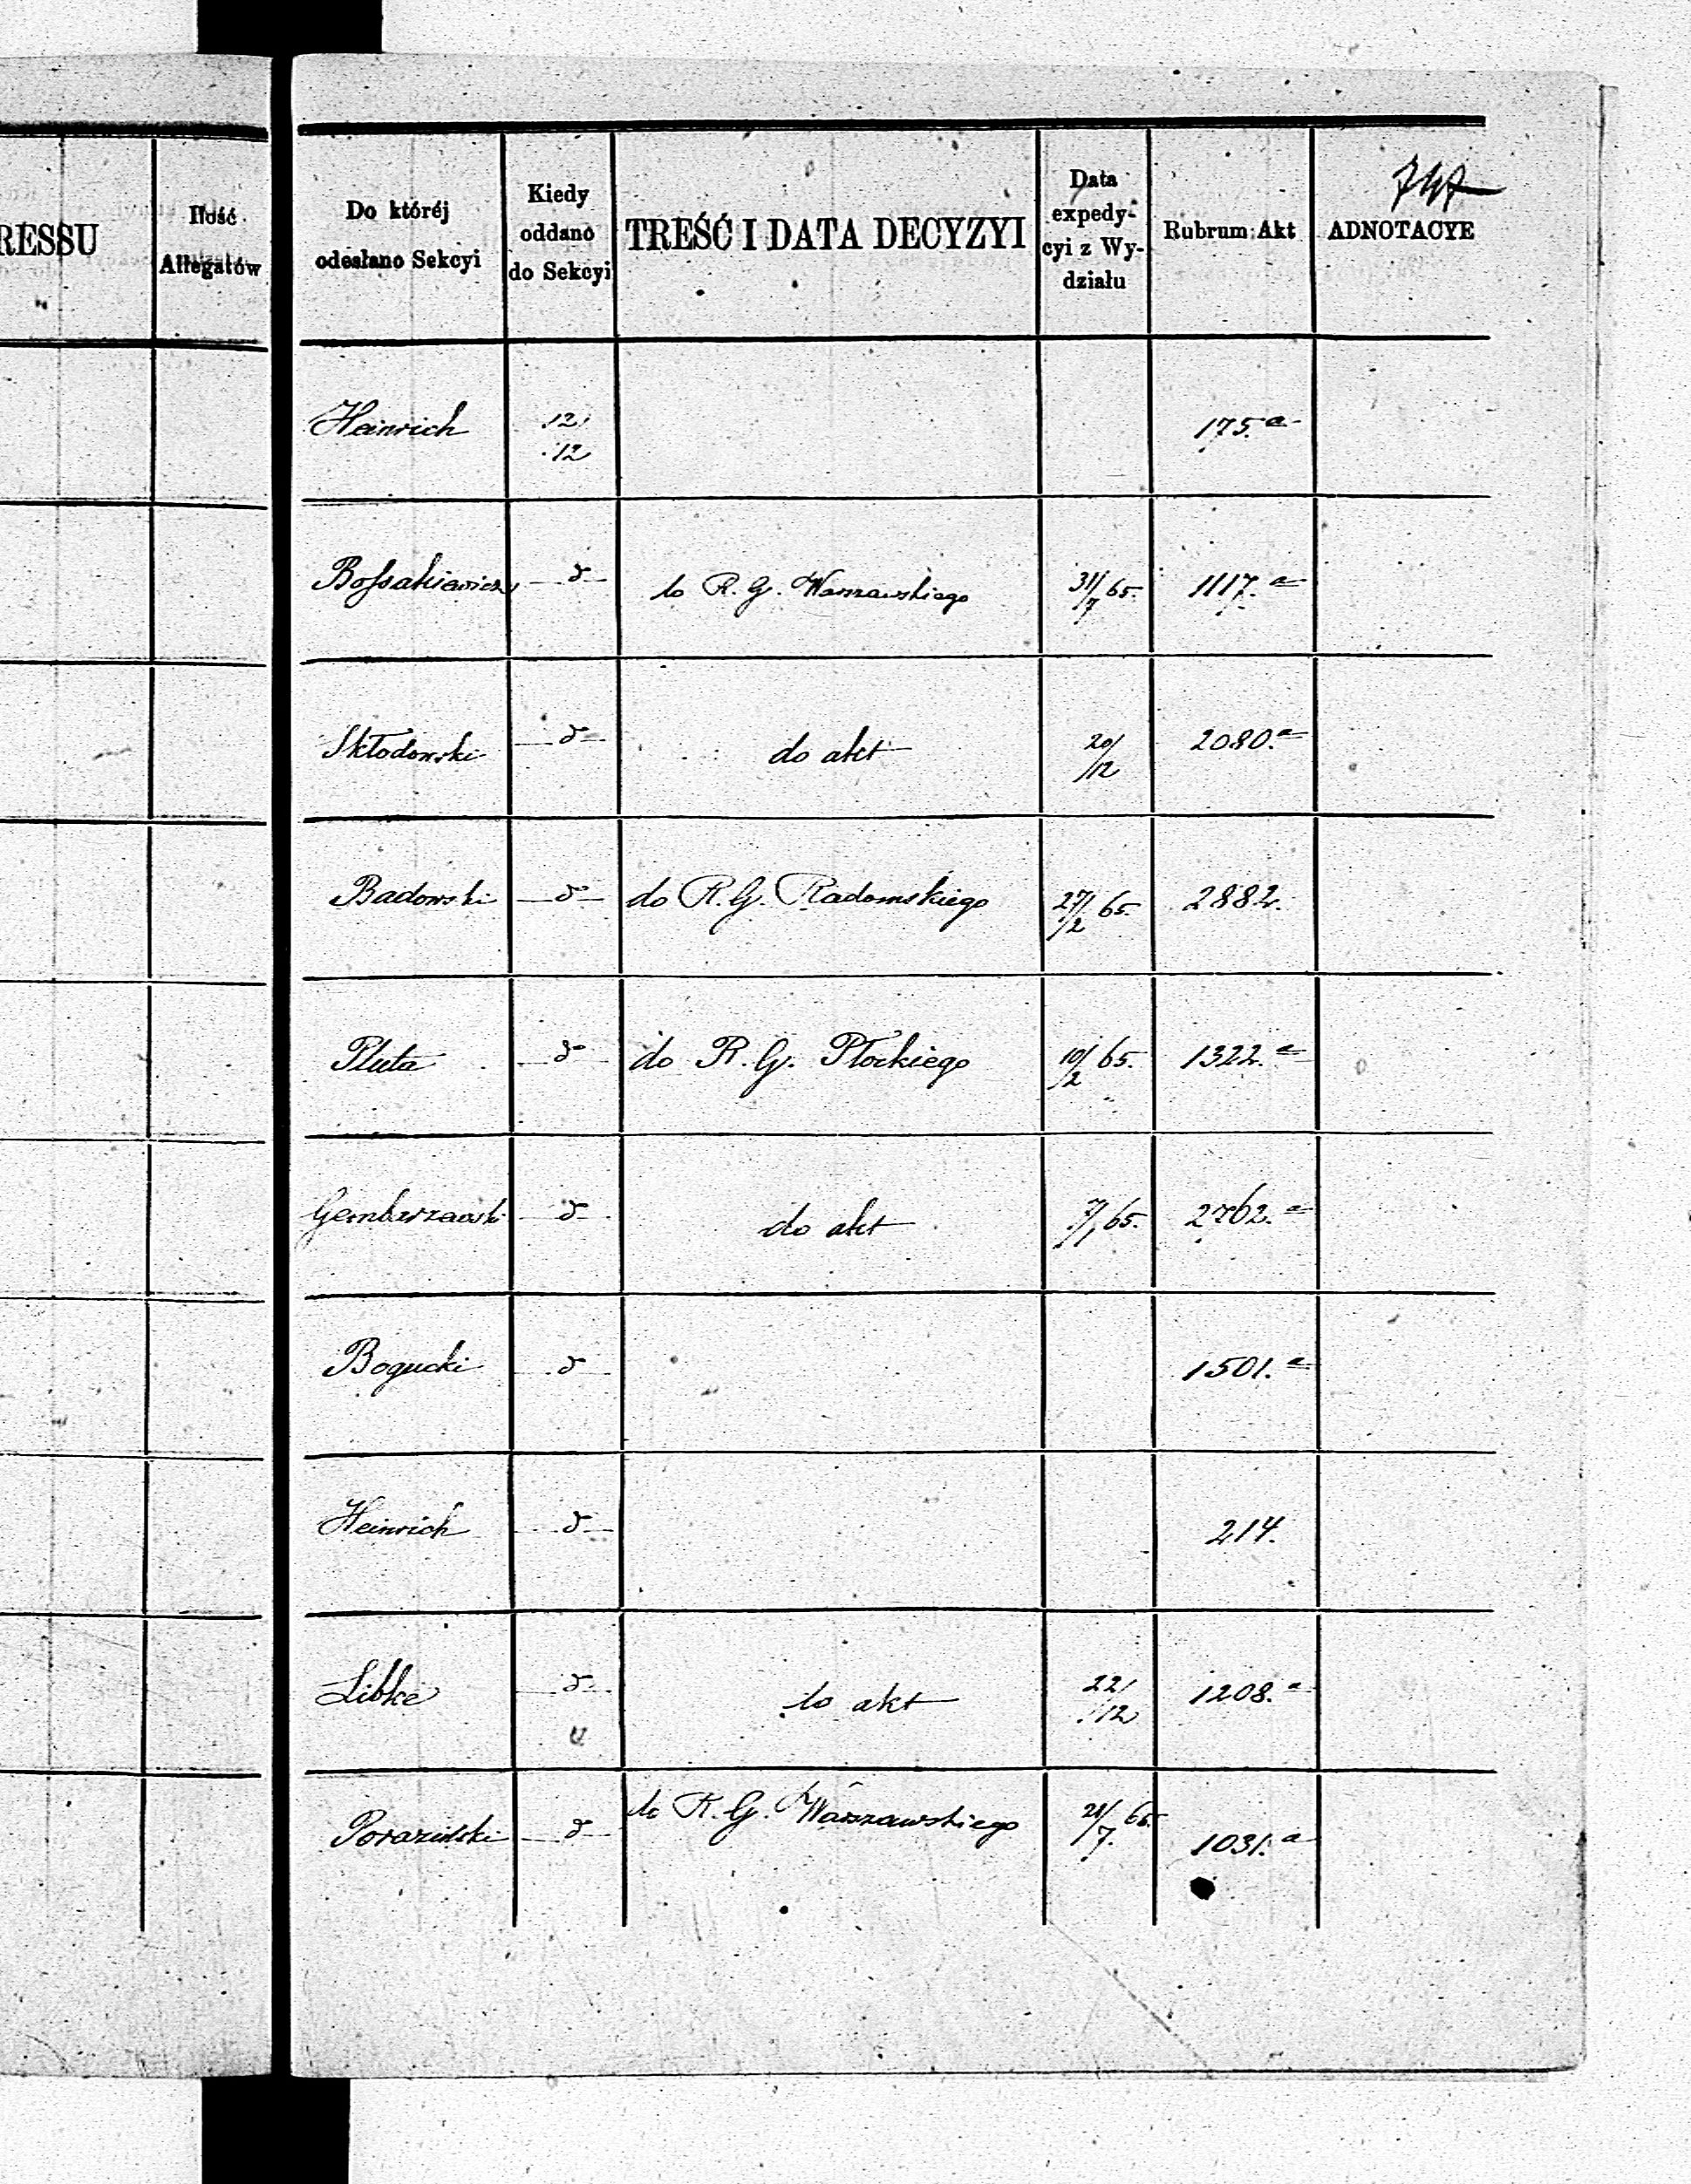 747
RESSU
Ilość
Allegatów
Do któréj
odesłano Sekcyi
Kiedy
oddano
do Sekcyi
TREŚĆ I DATA DECYZYI
Data
expedy-
cyi z Wy-
działu
Rubrum Akt
ADNOTACYE
Heinrich 12/12 175.a
Bossakiewicz — d° — do R. G. Warszawskiego 31/7 65. 1117.a
Skłodowski — d° — do akt 20/12 2080.a
Badowski — d° — do R. G. Radomskiego 27/2 65. 2882.
Pluta — d° — do R. G. Płockiego 10/2 65. 1322.a
Gembarzewski — d° — do akt 7/1 65. 2762.a
Bogucki — d° — 1501.a
Heinrich — d° — 214.
Libke — d° — do akt 22/12 1208.a
Poraziński — d° — do R. G. Warszawskiego 21/7. 65. 1031.a